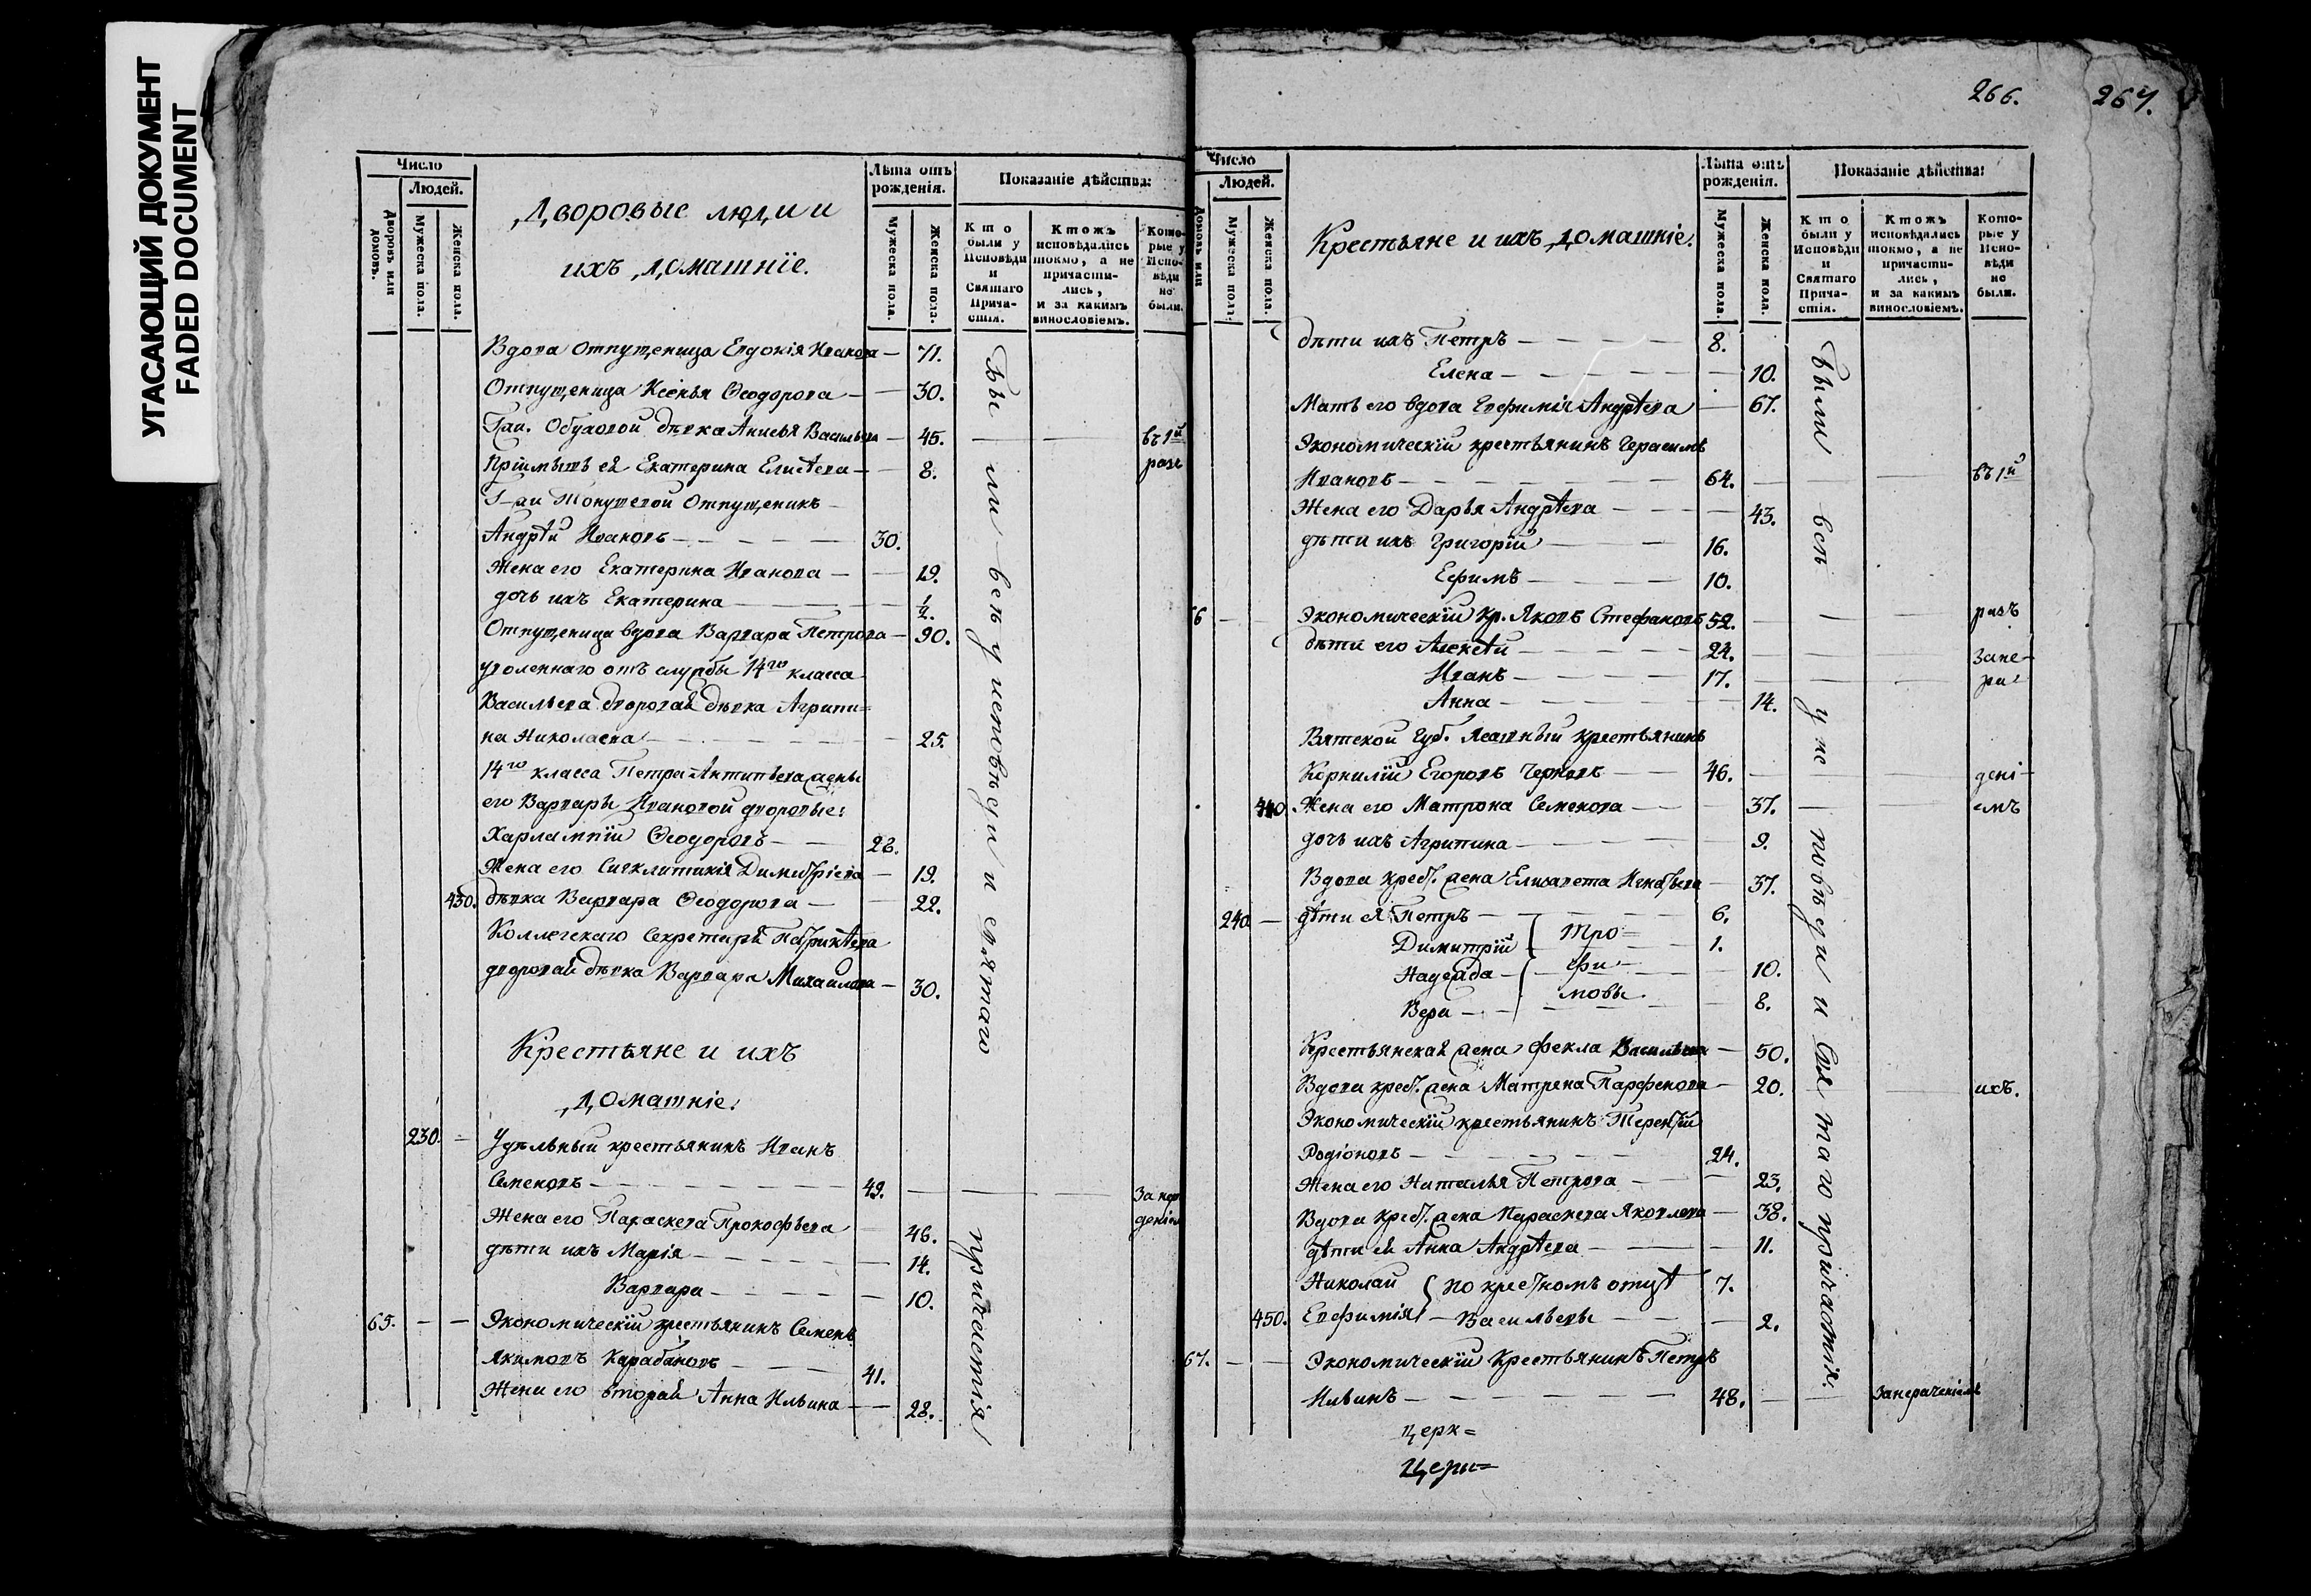 УГАСАЮЩИЙ ДОКУМЕНТ
FADED DOCUMENT
Число
Людей.
Дворовъ или домовъ.
Мужеска пола.
Женска пола.
Дворовые люди и
ихъ домашніе.
Лѣта отъ рожденія.
Мужеска пола.
Женска пола.
Показаніе дѣйства:
Кто были у Исповѣди и Святаго Прича-стія.
Ктожъ исповѣдались токмо, а не причасти-лись, и за какимъ винословіемъ.
Кото-рые у Испо-вѣди не были.
Вдова отпущеница Евдокія Иванова — 71.
Отпущеница Ксенья Ѳеодорова — — 30.
Гжи. дѣвка Анисья Васильева — 45. — — въ 1й
Пріимышъ ея Екатерина Елисѣева — — 8. разъ
Г-жи Отпущеникъ —
Андрѣй Ивановъ — — — — — 30.
Жена его Екатерина Иванова — — 19.
дочь ихъ Екатерина — — — ½.
Отпущеница вдова Варвара Петрова — 90.
уволеннаго отъ службы 14го класса
Васильева дворовая дѣвка Агрипи=
на Николаева — — — — — 25.
14го класса Петра Антипьева жены
его Варвары Ивановой дворовые:
Харлампій Ѳеодоровъ — — 28.
Жена его Сигклитикія Димитріева — 19.
430. дѣвка Варвара Ѳеодорова — — 22.
Коллежскаго Секретаря Патрикѣева
дворовая дѣвка Варвара Михайлова — 30.
Крестьяне и ихъ
домашніе:
230. — Удѣльный крестьянинъ Иванъ
Семеновъ — — — — — 49. — — — За нер
Жена его Параскева Прокофьева — 46. деніем
дѣти ихъ Марія — — — — — 14.
Варвара — — — — 10.
65. — — Экономическій крестьянинъ Семенъ
Якимовъ Карабановъ — — — 41.
Жена его вторая Анна Ильина — — 28.
Были всѣ у исповѣди и святаго причастія
266. 267.
Число
Людей.
Домовъ или
Мужеска пола.
Женска пола.
Крестьяне и ихъ домашніе.
Лѣта отъ рожденія.
Мужеска пола.
Женска пола.
Показаніе дѣйства:
Кто были у Исповѣди и Святаго Прича-стія.
Ктожъ исповѣдались токмо, а не причасти-лись, и за какимъ винословіемъ.
Кото-рые у Испо-вѣди не были.
дѣти ихъ Петръ — — — — — 8.
Елена — — — — — 10.
Мать его вдова Евфимія Андрѣева — 67.
Экономическій крестьянинъ Герасимъ
Ивановъ — — — — — — 64. — — — въ 1й
Жена его Дарья Андрѣева — — — — 43.
дѣти ихъ Григорій — — — 16.
Ефимъ — — — — 10.
66 — — Экономическій кр. Яковъ Стефановъ 52. — — — разъ
дѣти его Алексѣй — — — — — 24. — — — Зане-
Иванъ — — — — — 17. — — — ра-
Анна — — — — — — 14.
Вятской Губ. Ясашный крестьянинъ
Корнилій Егоровъ — — 46. — — дені-
440 Жена его Матрона Семенова — — 37. — емъ
дочь ихъ Агрипина — — — — — 9.
Вдова крест. жена Елисавета Игнатьева — 37.
240 — дѣти ея Петръ — — — — — 6.
Димитрій Тро= — — — 1.
Надежда — — фи — — — 10.
Вера — — мовы. — — 8.
Крестьянская жена Фекла Васильева — 50.
Вдова крест. жена Матрена Парфенова — 20. — ихъ.
Экономическій крестьянинъ Терентій
Родіоновъ — — — — — — 24.
Жена его Наталья Петрова — — — 23.
Вдова крест. жена Параскева Яковлева — 38.
дѣти ея Анна Андрѣева — — — 11.
Николай по крестномъ отцѣ 7.
450. Евфимія — Васильевы — — — 2.
67. — — Экономическій Крестьянинъ Петръ
Ильинъ — — — — — — 48. — — Занераченіемъ
церк=
Церк=
Были всѣ у исповѣди и Святаго причастія.